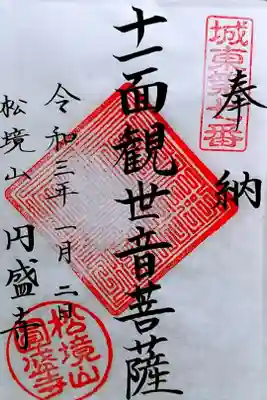 城東第七番
奉納
十一面観世音菩薩
令和三年一月二日
松境山 円盛寺
松境山
圓盛寺